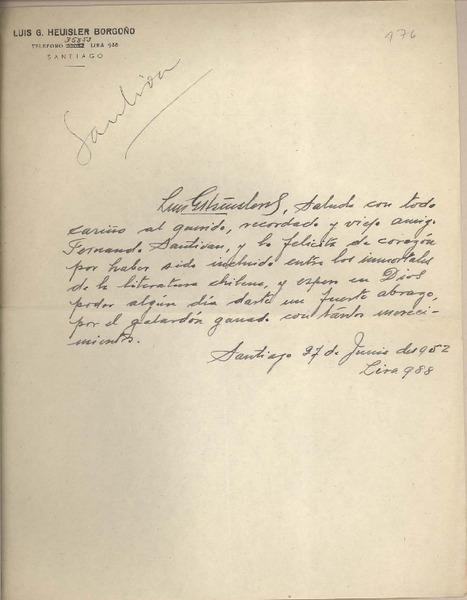 LUIS G. HEUISLER BORGOÑO
35853
TELEFONO LIRA 988
SANTIAGO
476
Santivan
Luis G. Heuisler B, saluda con todo
cariño al querido, recordado y viejo amigo
Fernando Santivan, y lo felicita de corazón
por haber sido incluido entre los inmortales
de la literatura chilena, y espera en Dios
poder algún día darte un fuerte abrazo,
por el galardón ganado con tantos mereci-
mientos.
Santiago 27 de Junio de 1952
Lira 988